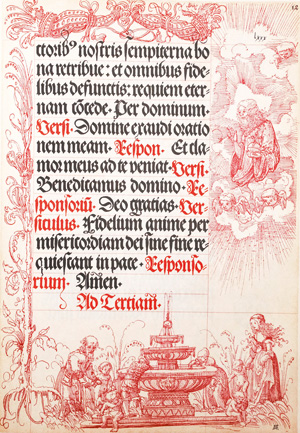 ctorib⁹ nostris sempiterna bo
na retribue: et omnibus fide
libus defunctis: requiem eter
nam cōcede. Per dominum.
Versi. Domine exaudi oratio
nem meam. Respon. Et cla
mor meus ad te veniat. Versi.
Benedicamus domino. Re
sponsoriū. Deo gratias. Ver
siculus. Fidelium anime per
misericordiam dei sine fine re
quiescant in pace. Responso
rium. Amen.
Ad Tertiam.